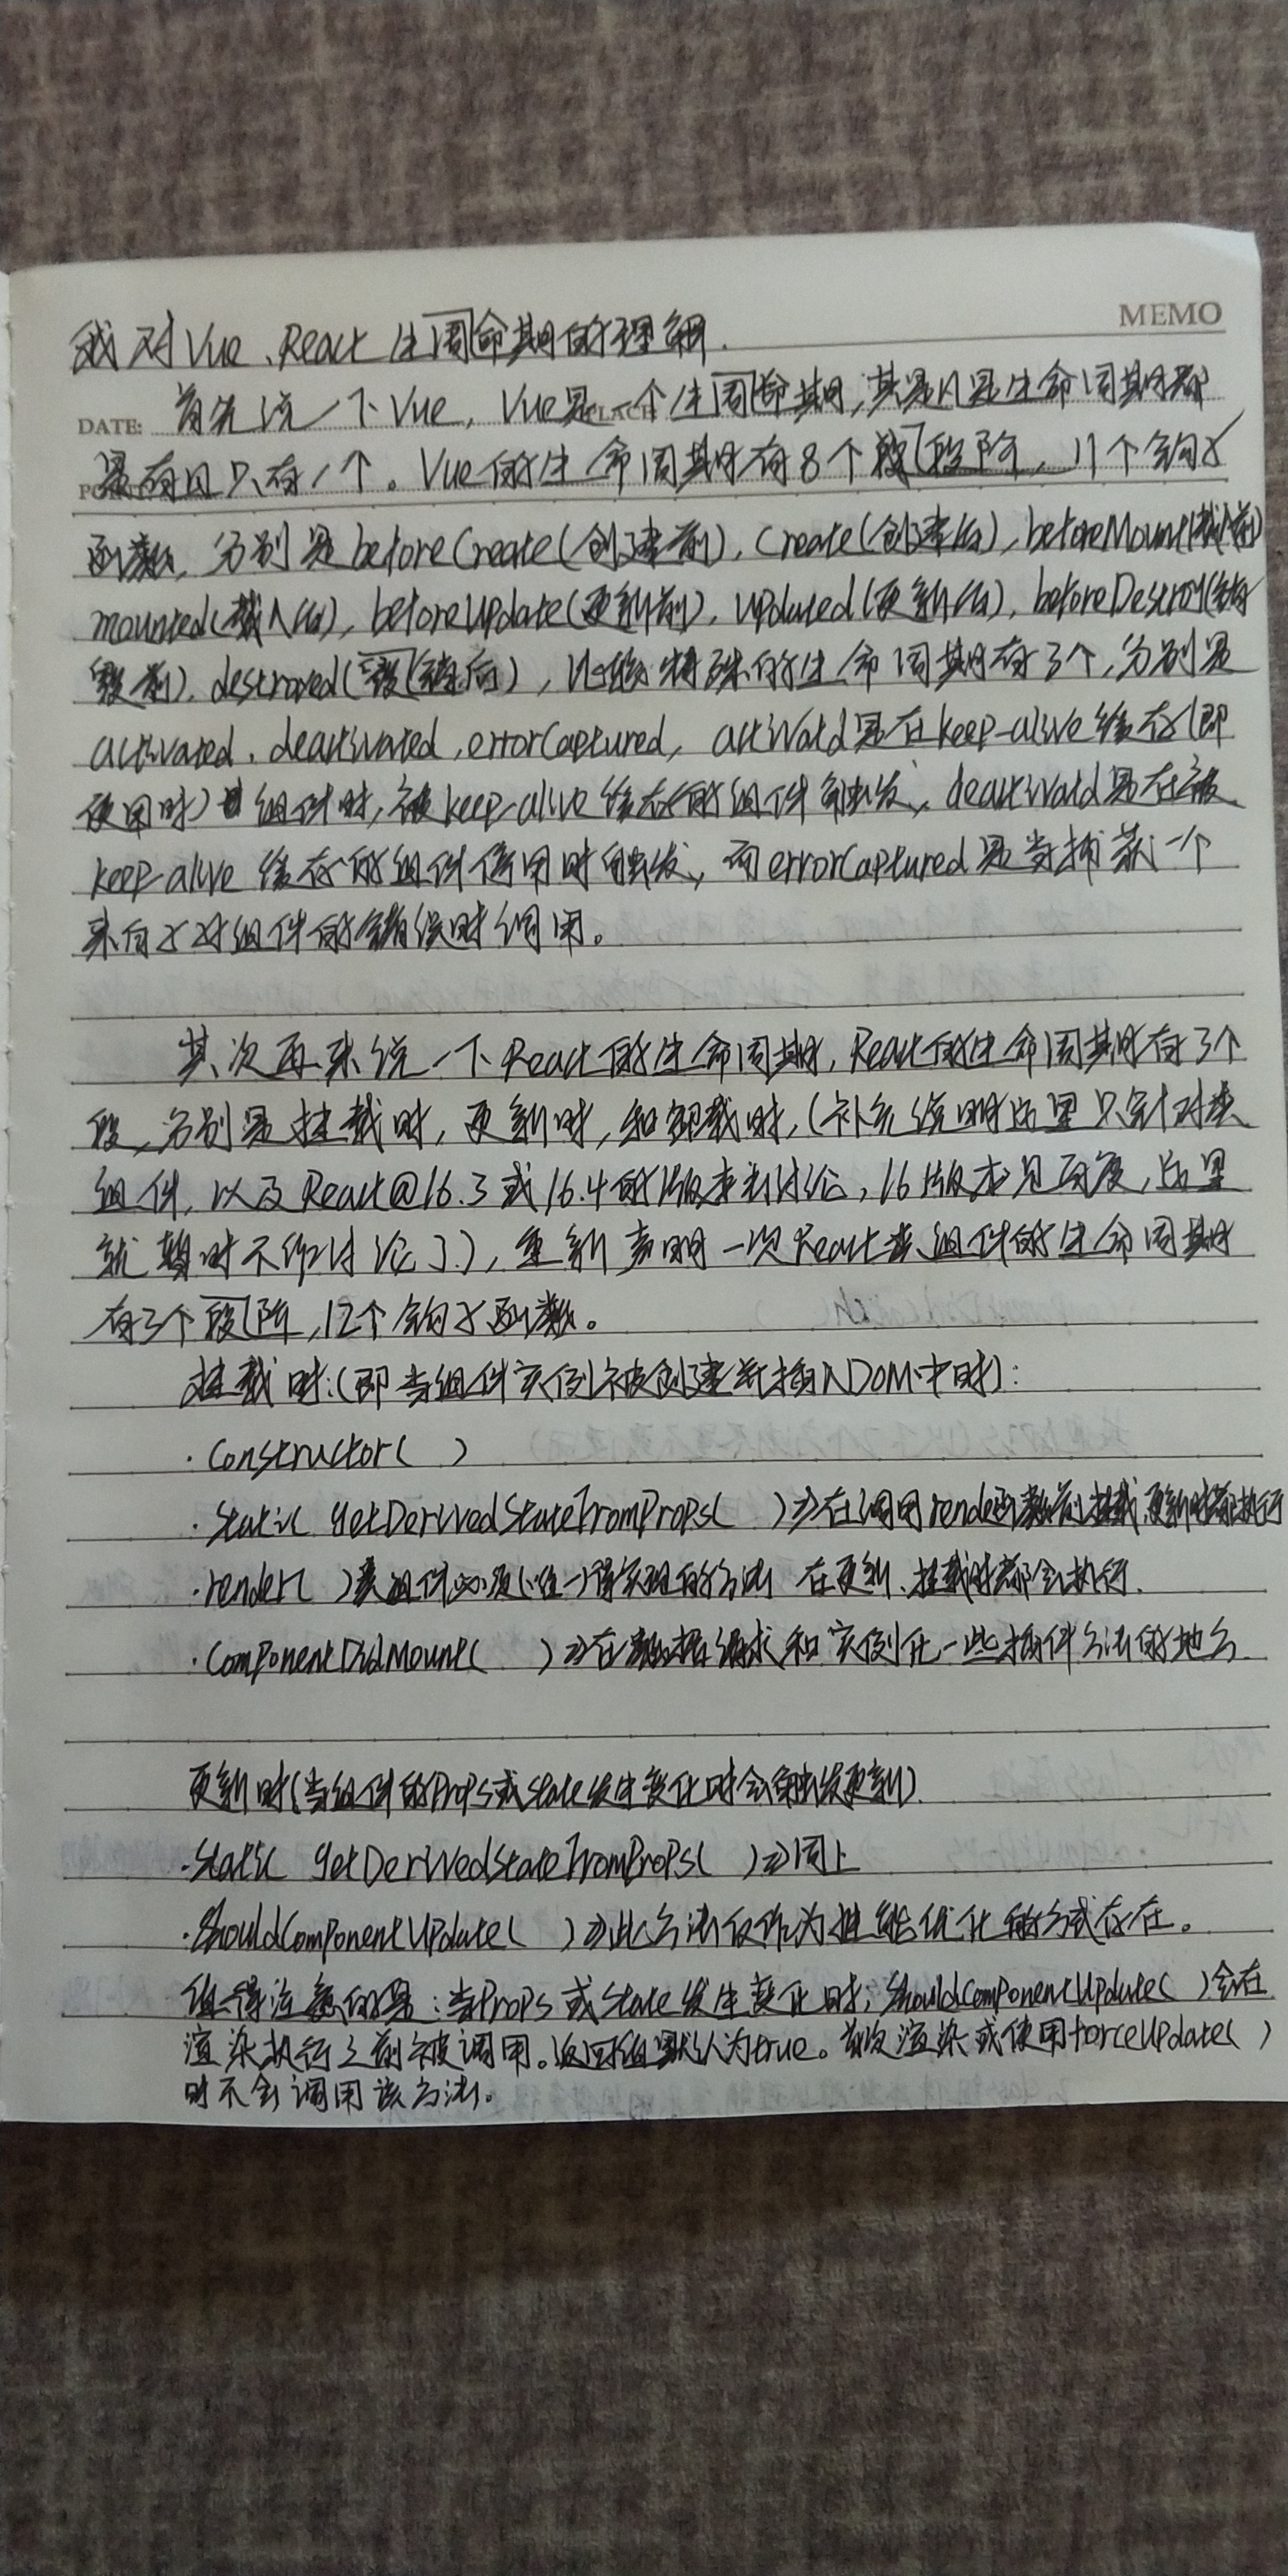 MEMO
我对Vue、React 生周命期的理解.
DATE: 首先说一下Vue, Vue是一个生周命期,其是从是生命周期都
是有且只有1个。Vue的生命周期有8个段阶,11个钩子
函数,分别是beforeCreate(创建前),Create(创建后),beforeMount(载入前)
mounted(载入后),beforeUpdate(更新前),Updated(更新后),beforeDestroy(销
毁前),destroyed(毁销后),比较特殊的生命周期有3个,分别是
activated、deactivated,errorCaptured, activatd是在keep-alive缓存(即
使用时)组件时,被keep-alive缓存的组件触发,deactivatd是在被
keep-alive 缓存的组件停用时触发,而errorCaptured是当捕获一个
来自子孙组件的错误时调用。
其次再来说一下React的生命周期,React的生命周期有3个
段,分别是挂载时,更新时,和卸载时,(补充说明这里只针对类
组件,以及React@16.3或16.4的版本来讨论,16版本,这里
就暂时不作讨论了),重新声明一次React类组件的生命周期
有3个段阶,12个钩子函数。
挂载时:(即当组件实例被创建并插入DOM中时):
·Constructor( )
·Static getDerivedStateFromProps( )⇒在调用rende函数前,挂载,更新时都执行
·render( )类组件必须(唯一)得实现的方法 在更新、挂载时都会执行.
·ComponentDidMount( )⇒在数据请求和实例化一些插件方法的地方
更新时(当组件的Props或State发生变化时会触发更新)
·Static getDerivedStateFromProps( )⇒同上
·ShouldComponentUpdate( )⇒此方法仅作为性能优化的方式存在。
值得注意的是:当Props或State发生变化时,ShouldComponentUpdate( )会在
渲染执行之前被调用。返回值默认为true。首次渲染或使用forceUpdate( )
时不会调用该方法。